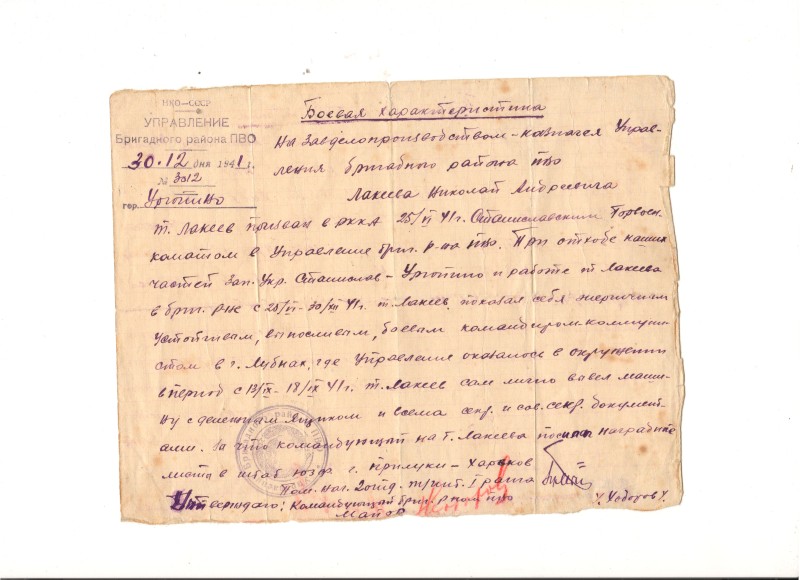 НКО–СССР
УПРАВЛЕНИЕ
Бригадного района ПВО
30.12 дня 1941 г.
№ 3012
гор. Урюпино
Боевая характеристика
На Завделопроизводством – казначея Управ-
ления бригадного района ПВО
Лакеева Николай Андреевича
т. Лакеев призван в РККА 25/VI 41 г. Станиславским Горвоен-
коматом в Управление бриг. р-на ПВО. При отходе наших
частей Зап. Укр. Станислав – Урюпино и работе т. Лакеева
в бриг. р-не с 25/VI – 30/XII 41 г. т. Лакеев показал себя энергичным
устойчивым, выносливым, боевым командиром-коммуни-
стом в г. Лубнах, где Управление оказалось в окружении
в период с 13/IX – 18/IX 41 г. т. Лакеев сам лично вывел маши-
ну с денежным ящиком и всеми секр. и сов. секр. документ-
ами. За что командующий на т. Лакеева послал наградные
листа в штаб ЮЗФ г. Прилуки – Харьков
Пом. нач. 2 отд. т/инт. I ранга
/Федоров/.
Утверждаю: Командующий бриг. р-ном ПВО
Майор